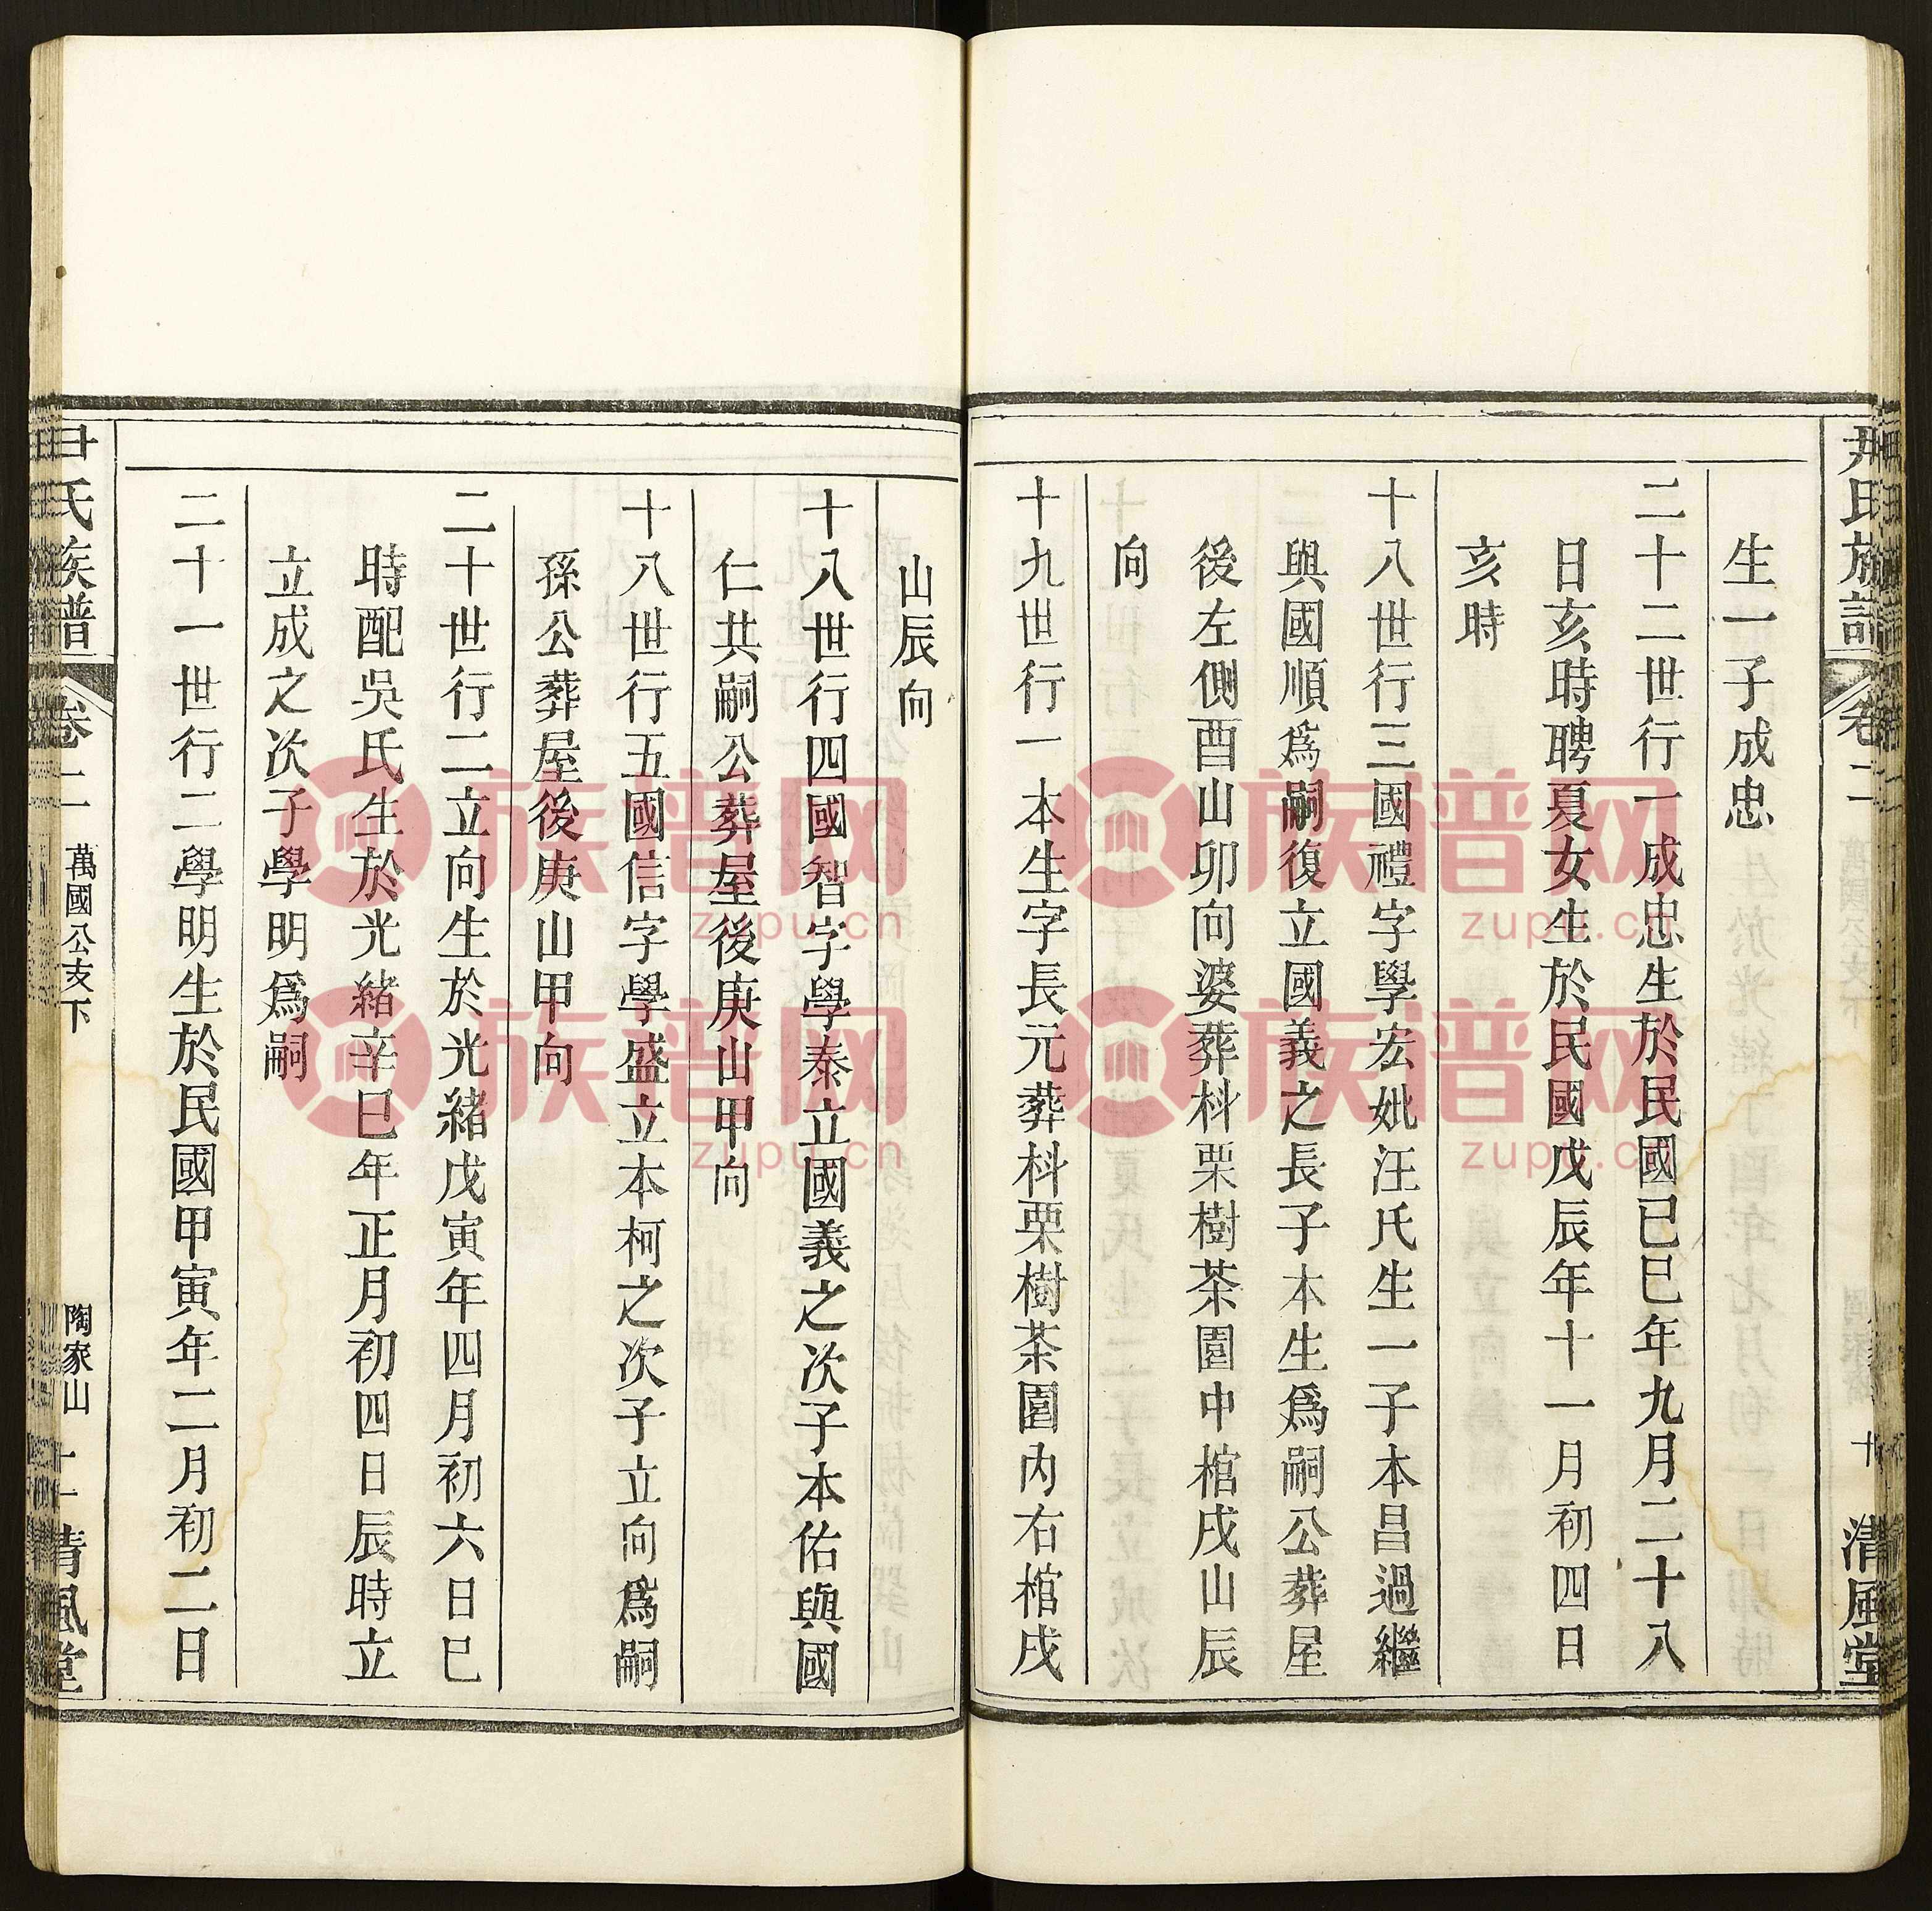 尹氏族譜 卷二 十 清風堂
生一子成忠
二十二世行一成忠生於民國己巳年九月二十八
日亥時聘夏女生於民國戊辰年十一月初四日
亥時
十八世行三國禮字學宏妣汪氏生一子本昌過繼
與國順爲嗣復立國義之長子本生爲嗣公葬屋
後左側酉山卯向婆葬枓栗樹茶園中棺戌山辰
向
十九世行一本生字長元葬枓栗樹茶園內右棺戌
山辰向
十八世行四國智字學泰立國義之次子本佑與國
仁共嗣公葬屋後庚山甲向
十八世行五國信字學盛立本柯之次子立向爲嗣
孫公葬屋後庚山甲向
二十世行二立向生於光緒戊寅年四月初六日巳
時配吳氏生於光緒辛巳年正月初四日辰時立
立成之次子學明爲嗣
二十一世行二學明生於民國甲寅年二月初二日
尹氏族譜 卷二 萬國公支下 陶家山 十一 清風堂
族谱网
zupu.cn
族谱网
zupu.cn
族谱网
zupu.cn
族谱网
zupu.cn